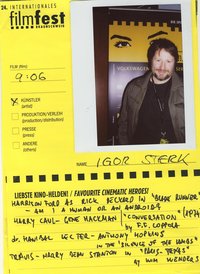 24. INTERNATIONALES
filmfest
BRAUNSCHWEIG
FILM (film)
9:06
KÜNSTLER
(artist)
PRODUKTION/VERLEIH
(production/distribution)
PRESSE
(press)
ANDERE
(others)
VOLKSWAGEN
NAME IGOR STERK
LIEBSTE KINO-HELDEN! / FAVOURITE CINEMATIC HEROES!
HARRISON FORD AS RICK DECKARD IN "BLADE RUNNER"
- AM I A HUMAN OR AN ANDROID?
HARRY CAUL - GENE HACKMAN "CONVERSATION" (1974)
by F.F. COPPOLA
dr. HANIBAL LECTER - ANTHONY HOPKINS
IN THE "SILENCE OF THE LAMBS"
TRAVIS - HARRY DEAN STANTON IN "PARIS, TEXAS"
by WIM WENDERS